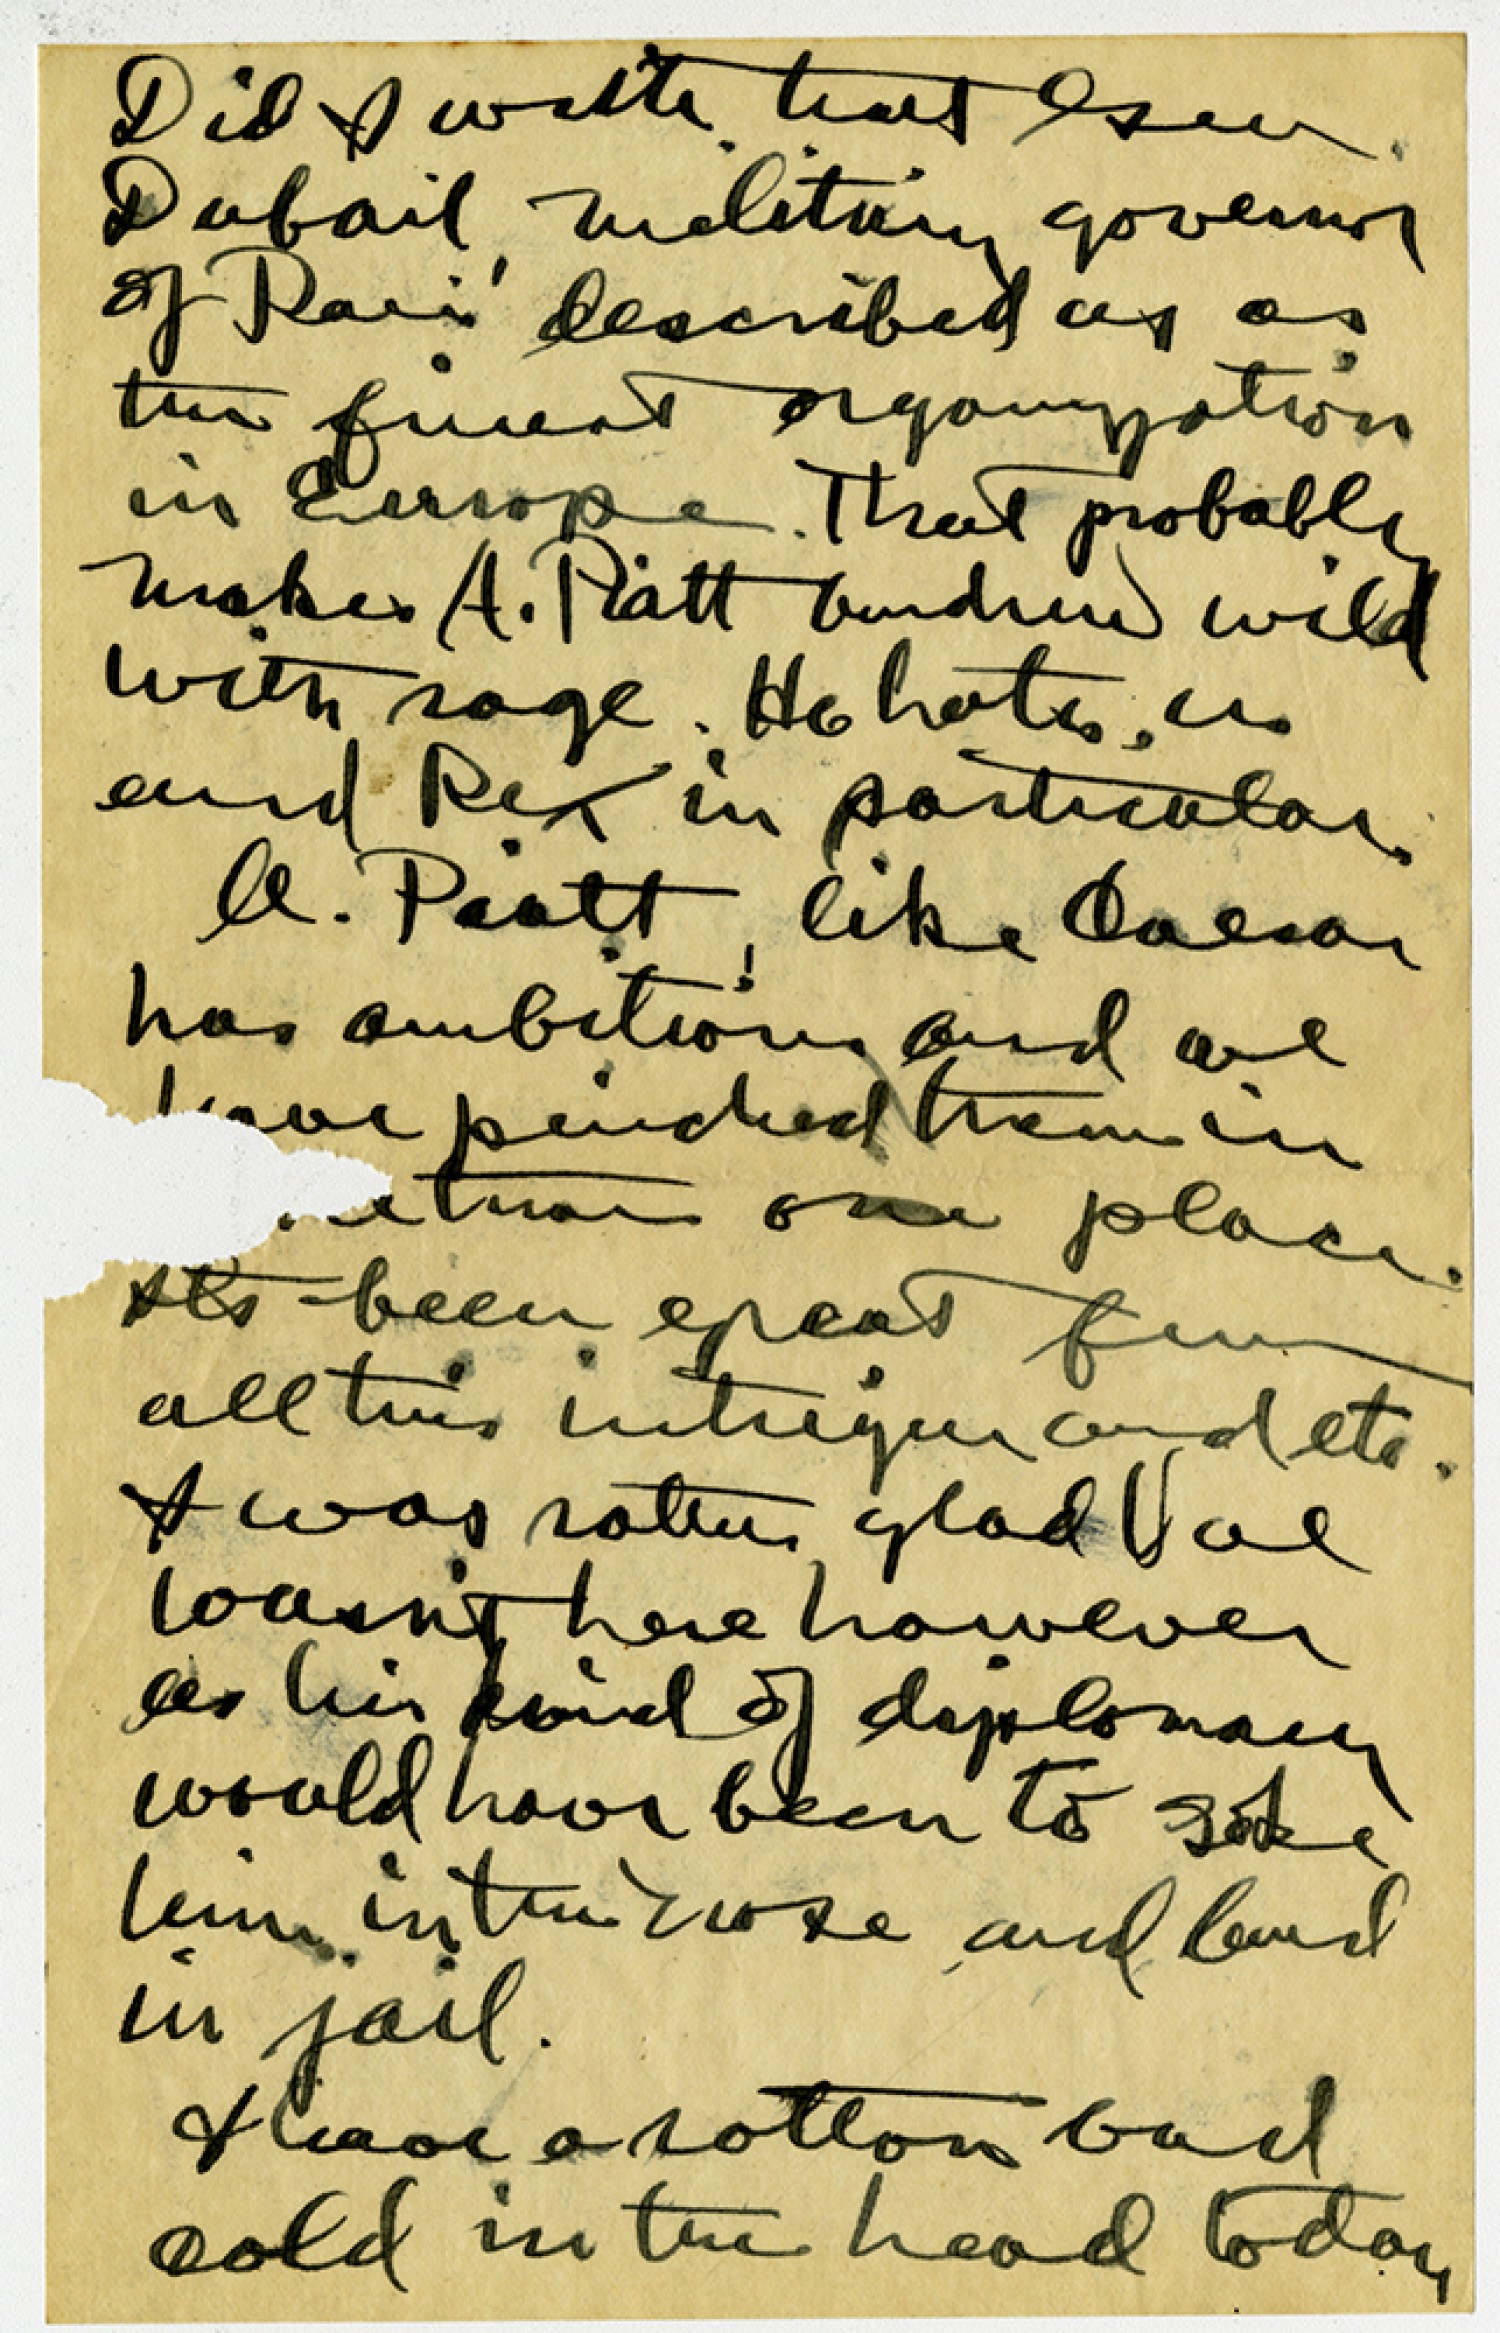 Did I write that Gen.
Dubail military governor
of Paris described us as
the finest organization
in Europe. That probably
makes A. Piatt Andrew wild
with rage. He hates us
and Rex in particular.
A. Piatt, like Caesar
has ambitions and we
have pinched them in
more than one place.
It's been great fun
all this intrigue and etc.
I was rotten glad Val
wasn't here however
as his kind of diplomacy
would have been to
him in the nose and land
in jail.
I have a rotten bad
cold in the head today